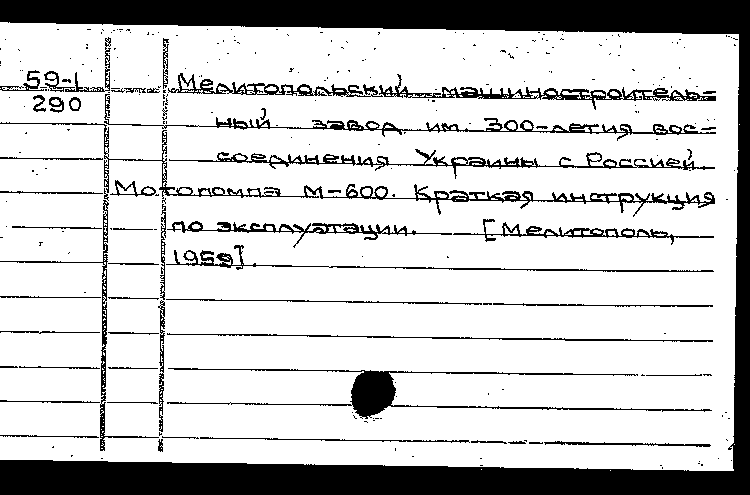 59-1
290
Мелитопольский машинострoитель=
ный завод им. 300-летия вос=
соединения Украины с Россией.
Мотопомпа М-600. Краткая инструкция
по эксплуатации. [Мелитополь,
1959].